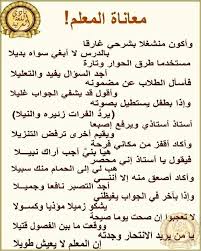 معاناة المعلم!
وأكون منشغلا بشرحي غارقا
بالدرس لا أبغي سواه بديلا
مستخدما طرق الحوار وتارة
أجد السؤال يفيد والتعليلا
فأسأل الطلاب عن مضمونه
وأقول قد يشفي الجواب غليلا
وإذا بطفل يستطيل بصوته
(يردُ الفرات زئيره والنيلا)
أستاذ أستاذي ويرفع إصبعا
ويقيم أخرى ترفض التنزيلا
وأكاد أقفز من مكاني فرحة
هيا بني أجب أراك نبيـلا
فيقول يا أستاذ إني محصر
هب لي إلى الحمام منك سبيلا
وأكاد أصعق منه إلا أنني
أجد التصبر نافعا وجميـلا
وإذا بآخر في الجواب يغيظني
يشكو زميلا مؤذيا وكسولا
لا تعجبوا إن صحت يوما صيحة
ووقعت ما بين الفصول قتيلا
يا من يريد الانتحار وجدته
إن المعلم لا يعيش طويلا